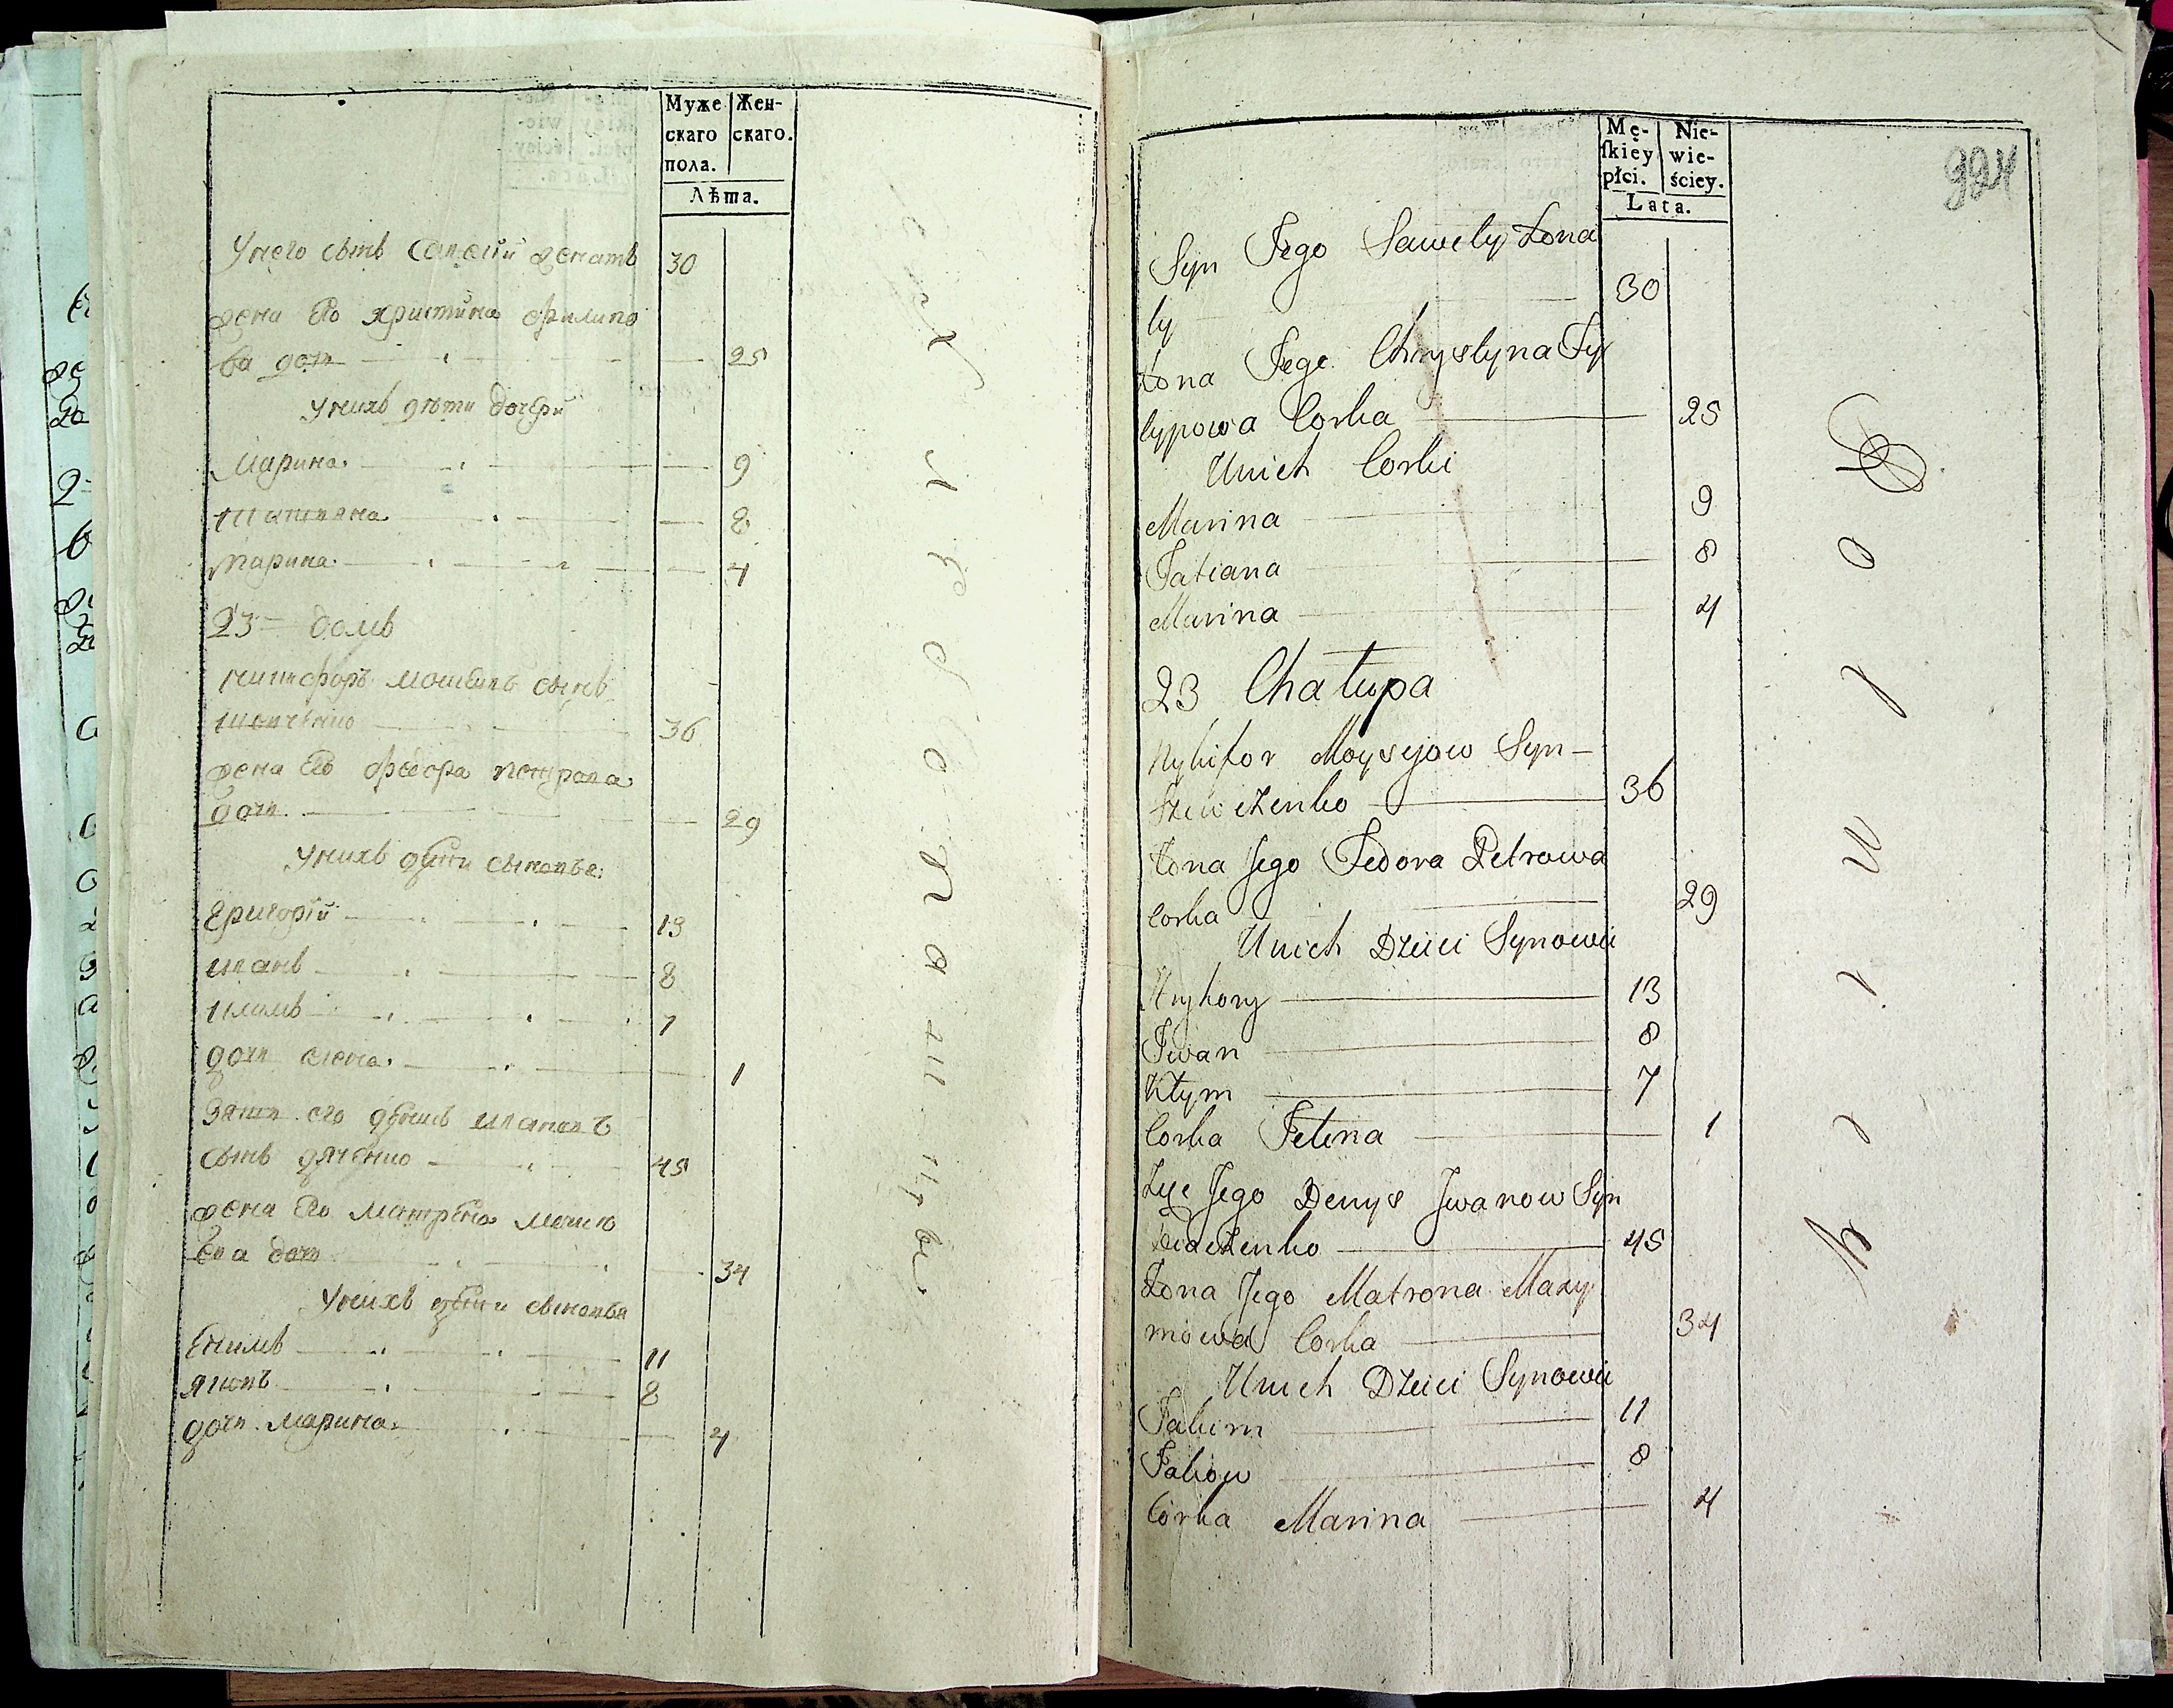 Муже
скаго
пола.
Жен-
скаго.
Лѣта.
Унего сынъ Савелий женатъ 30
жена Его христина филипо
ва дочь 25
Унихъ дѣти дочери
Марина 9
Татияна 8
Марина 4
23 домъ
никифоръ моисеевъ сынъ
шевченко 36
жена Его федора петрова
дочь 29
Унихъ дѣти сыновья
Григорiй 13
иванъ 8
климъ 7
дочь 1
Зять его денисъ ивановъ
сынъ дяченко 45
жена Его Матрена
ва дочь 34
Унихъ дѣти сыновья
Екимъ 11
яковъ 8
дочь Марина 4
Mę-
ſkiey
płci.
Nie-
wie-
ściey.
Lata.
324
Syn Jego Sawely Żona
ty 30
Żona Jego Chrystyna Fy
lypowa Corka 25
Unich Corki
Marina 9
Tatiana 8
Marina 4
23 Chałupa
Nykifor Moysyjow Syn
Szewczenko 36
Żona Jego Fedora Petrowa
Corka 29
Unich Dzieci Synowie
Hryhory 13
Iwan 8
Kłym 7
Corka 1
Jego Denys Jwanow Syn
Diaczenko 45
Żona Jego Matrona Maxy
mowa Corka 34
Unich Dzieci Synowie
Jakim 11
Jakow 8
Córka Marina 4